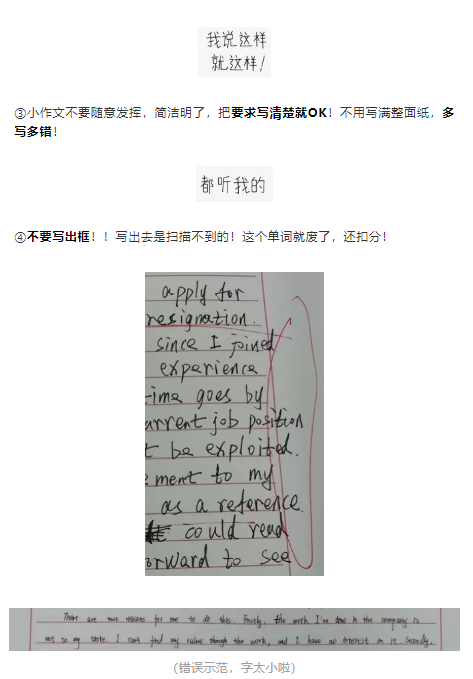 我说这样
就这样!
③小作文不要随意发挥，简洁明了，把要求写清楚就OK！不用写满整面纸，多
写多错！
都听我的
④不要写出框！！写出去是扫描不到的！这个单词就废了，还扣分！
apply for
resignation.
since I joined
experience
time goes by
urrent job position
t be exploited.
ement to my
as a reference.
could read
orward to see
There are two reasons for me to do this. Firstly, the work I've done in the company is
not to my taste. I can't find my value through the work, and I have no interest in it. Secondly,
(错误示范，字太小啦)